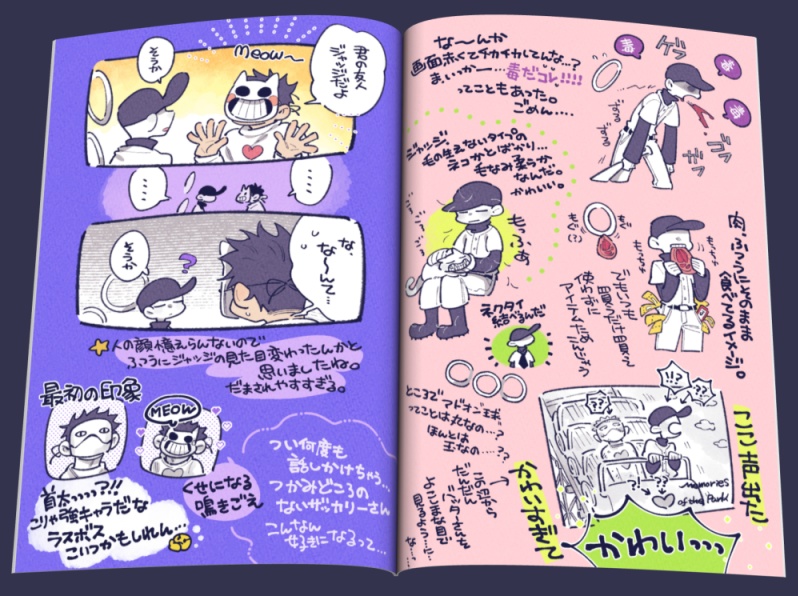 君の友人
ジャッジだよ
MEOW〜
そうか
・・・・
・・・・
な、
な〜んて…
そうか
?
人の顔憶えらんないので
ふつうにジャッジの見た目変わったんかと
思いましたね。
だまされやすすぎる。
最初の印象
首太っっっ?!!
こりゃ強キャラだな
ラスボス
こいつかもしれん…
MEOW
くせになる
鳴きごえ
つい何度も
話しかけちゃう…
つかみどころの
ないザッカリーさん
こんなん
好きになるって…
な〜んか
画面赤くてチカチカしてんな…?
ま、いっかー…毒だコレ!!!!
ってこともあった。
ごめん….
毒
毒
毒
ゲフ
ゴフ
ガフ
ジャッジ、
毛の生えないタイプの
ネコかとばかり…
毛なみ柔らか
なんだ。
かわいい。
もっふぁ
ネクタイ
結べるんだ
肉、ふつうにそのまま
食べてるイメージ。
もっちゃ
もっちゃ
でもいつも
買うだけ買って
使わずに
アイテムためこんじゃう
ところで アドオン球
ってことは丸なの…?
ほんとは
玉なの….?
この辺から
だんだん
バッターさんを
よこしまな目で
見るよう…に…
な…
ここ声出た
かわいすぎて
かわいっっっ
!!?
??
!?
??
memories
of the Park